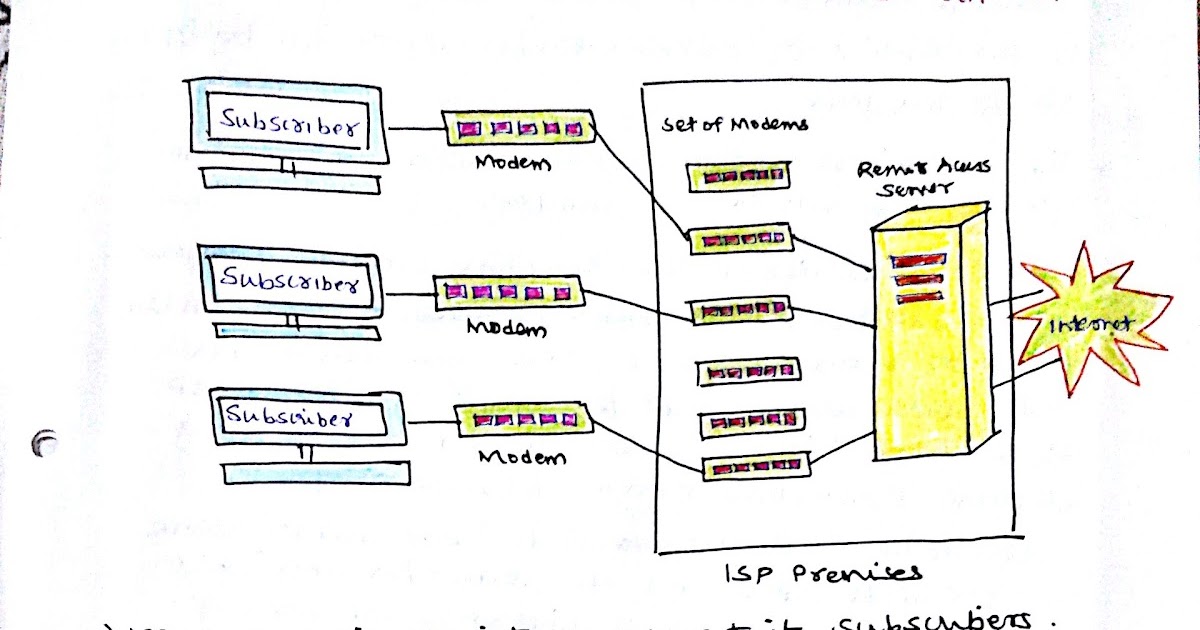 Subscriber
Modem
Subscriber
Modem
Subscriber
Modem
Set of Modems
Remot Acess
Server
Internet
ISP Premises
it subscribers.